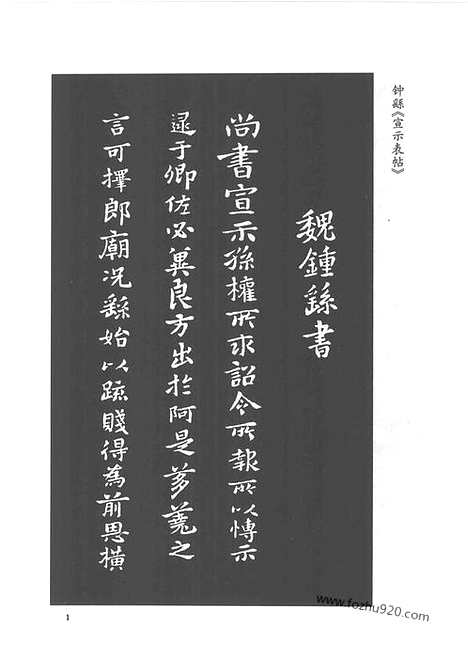 钟繇《宣示表帖》
魏鍾繇書
尚書宣示孫權所求詔令所報所以博示
逮于卿佐必冀良方出於阿是芻蕘之
言可擇郎廟況繇始以疏賤得為前恩橫
www.fozhu920.com
1